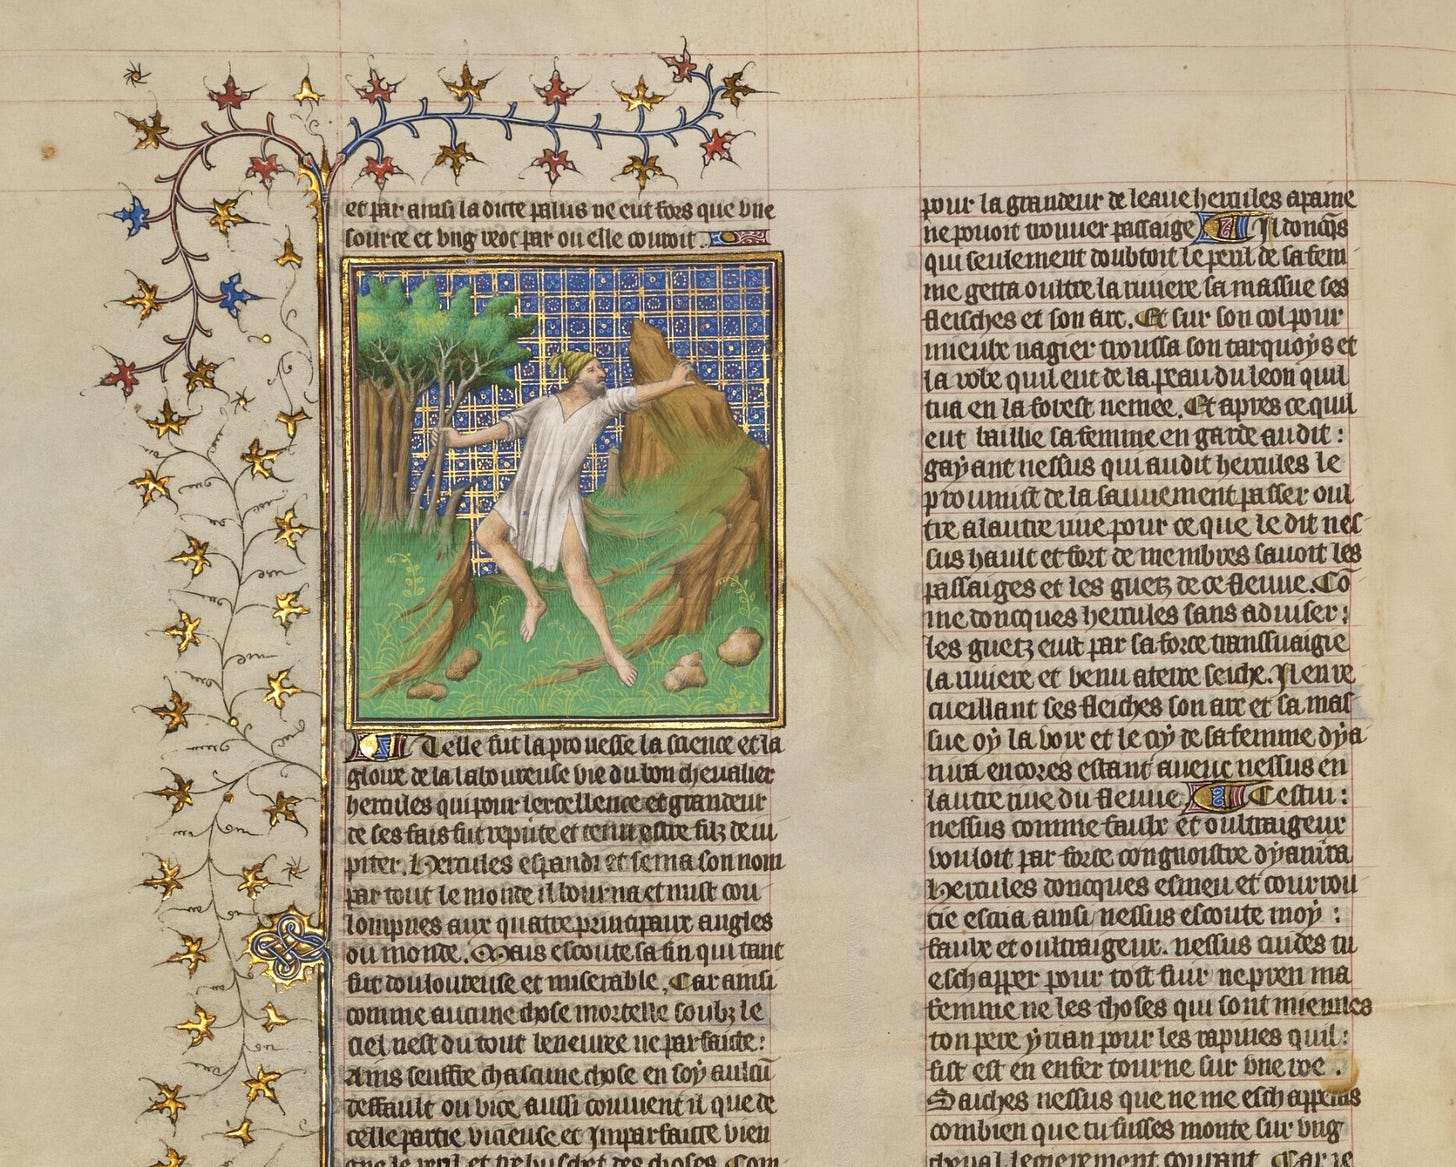 et par ainsi la dicte palus ne eut fors que vne
source et vng ruot par ou elle couroit.
Telle fut la prouesse la science et la
gloire de la laboureuse vie du bon chevalier
hercules qui pour lexcellence et grandeur
de ses fais fut repute et tenu estre filz de iu
piter. Hercules espandi et sema son nom
par tout le monde il bourna et mist cou
lompnes aux quatre principaux angles
du monde. Mais escoute sa fin qui tant
fut douloureuse et miserable. Car ainsi
comme aucune chose mortelle soubz le
ciel nest du tout beneuree ne parfaicte:
Ains seuffre chascune chose en soy aulcū
deffault ou vice, aussi convient il que de
celle partie vicieuse et Imparfaicte vien
gne le peril et trebuschet des choses. Com
pour la grandeur de leaue hercules a paine
ne pouoit trouver passaige Il doncq̄s
qui seulement doubtoit le peril de sa fem
me getta oultre la riuiere sa massue ses
fleisches et son arc. Et sur son col pour
mieulx nagier troussa son tarquoys et
la robe quil eut de la peau du leon quil
tua en la forest nemee. Et apres ce quil
eut baillie sa femme en garde au dit:
gayant nessus qui audit hercules le
promist de la sauuement passer oul
tre a lautre riue pour ce que le dit nes
sus hault et fort de membres sauoit les
passaiges et les guetz de ce fleuue. Cō
me doncques hercules sans aduiser:
les guetz eut par sa force transuaigie
la riuiere et venu a terre seiche. Il en re
cueillant ses fleiches son arc et sa mas
sue oy la voix et le cry de sa femme dya
nira encores estant auecq nessus en
lautre riue du fleuue Cestui:
nessus comme faulx et oultraigeux
vouloit par force congnoistre dyanira
Hercules doncques esmeu et courrou
cie escria ainsi nessus escoute moy:
faulx et oultraigeux. nessus cuides tu
eschapper pour tost fuir ne pren ma
femme ne les choses qui sont miennes
ton pere yxian pour les rapines quil:
fist est en enfer tourne sur vne roe.
Saiches nessus que ne me eschapperas
combien que tu fusses monte sur vng
cheual legierement courant. Car ie